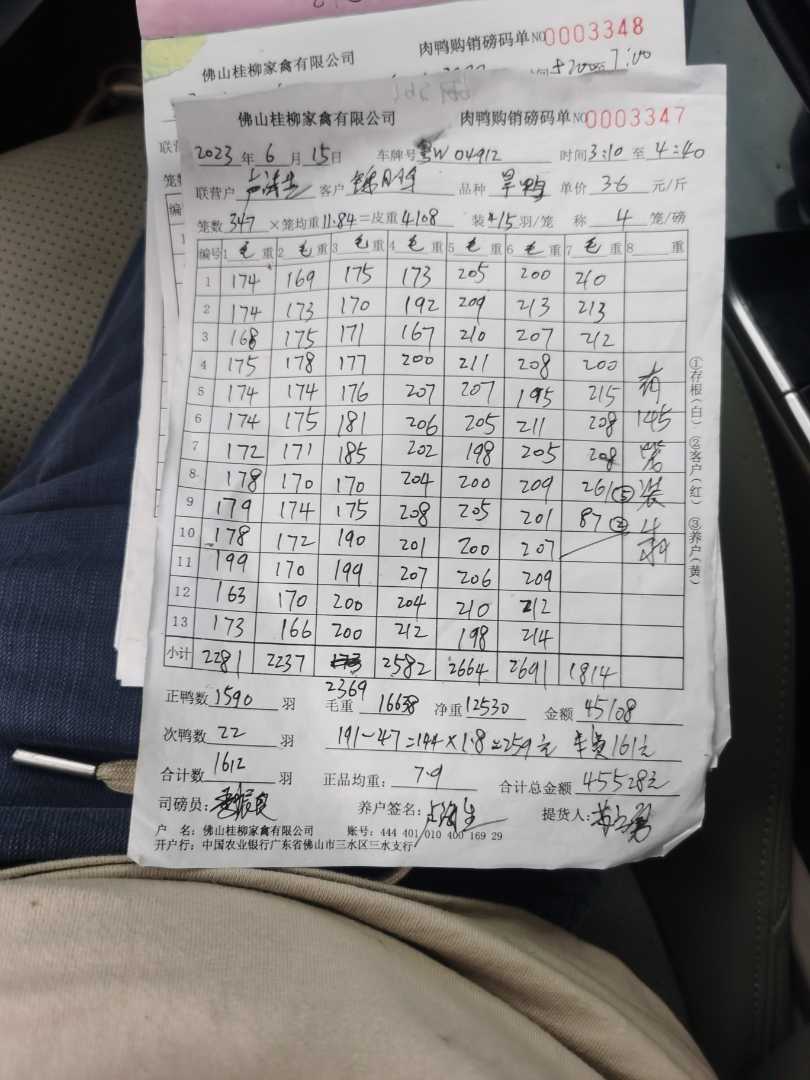 佛山桂柳家禽有限公司 肉鸭购销磅码单 NO 0003348
7:00
佛山桂柳家禽有限公司 肉鸭购销磅码单 NO 0003347
2023 年 6 月 15 日 车牌号 粤W 04912 时间 3:10 至 4:40
联营户 客户 品种 旱鸭 单价 3.6 元/斤
笼数 347 ×笼均重 11.84 =皮重 4108 装 15 羽/笼 称 4 笼/磅
编号 1 毛 重 2 毛 重 3 毛 重 4 毛 重 5 毛 重 6 毛 重 7 毛 重 8 重
1 174 169 175 173 205 200 210
2 174 173 170 192 209 213 213
3 168 175 171 167 210 207 212
4 175 178 177 200 211 208 200
5 174 174 176 207 207 195 215
6 174 175 181 206 205 211 208 145
7 172 171 185 202 198 205 208
8 178 170 170 204 200 209 261⑤ 装
9 179 174 175 208 205 201 87②
10 178 172 190 201 200 207
11 199 170 199 207 206 209
12 163 170 200 204 210 212
13 173 166 200 212 198 214
小计 2281 2237 2582 2664 2691 1814
2369
①存根(白) ②客户(红) ③养户(黄)
正鸭数 1590 羽 毛重 16638 净重 12530 金额 45108
次鸭数 22 羽 191-47=144×1.8=259元 车费161元
合计数 1612 羽 正品均重: 7.9 合计总金额 45528元
司磅员: 养户签名: 提货人:
户 名: 佛山桂柳家禽有限公司 账号: 444 401 010 400 169 29
开户行: 中国农业银行广东省佛山市三水区三水支行